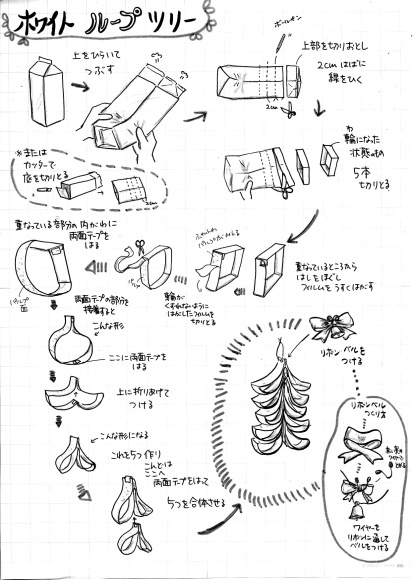 ホワイト ループ ツリー
上をひらいて
つぶす
ボールペン
上部を切りおとし
2cmはばに
線をひく
2cm
※または
カッターで
底を切りとる
2cm
わ
輪になった
状態のもの
5本
切りとる
重なっているところから
はしをほぐし
フィルムをうすくはがす
輪が
くずれないように
はがしたフィルムを
切りとる
重なっている部分の内がわに
両面テープを
はる
パルプ
面
両面テープの部分を
接着すると
こんな形
ここに両面テープを
はる
上に折りあげて
つける
こんな形になる
これを5つ作り
こんどは
ここへ
両面テープをはって
5つを合体させる
リボン ベルを
つける
リボンベル
つくり方
ワイヤーを
リボンに通して
ベルをつける